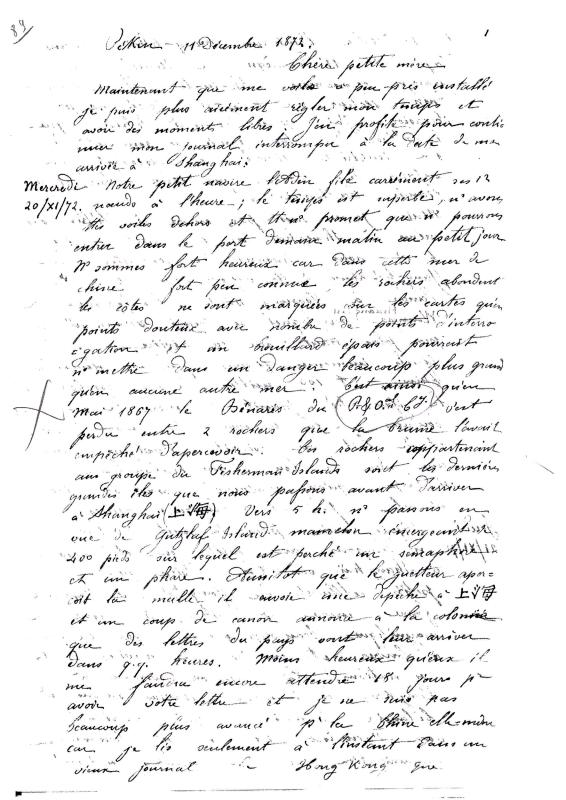 89
1
Pékin - 11 Décembre 1872.
Chère petite mère
Maintenant que me voilà à peu près installé
je puis plus aisément régler mon temps et
avoir des moments libres, j'en profite pour conti
nuer mon journal interrompu à la date de mon
arrivée à Shanghai.
Mercredi Notre petit navire l'Aden file carrément ses 12
20/XI/72. nœuds à l'heure ; le temps est superbe, ns avons
ttes voiles dehors et tt ns promet que ns pourrons
entrer dans le port demain matin au petit jour
Ns sommes fort heureux car dans cette mer de
chine fort peu connue les rochers abondent
les côtes ne sont marquées sur les cartes qu'en
points douteux avec nombre de points d'interro
gation et un brouillard épais pourrait
ns mettre dans un danger beaucoup plus grand
qu'en aucune autre mer : C'est ainsi qu'en
Mai 1867 le Bénarès du P. & O. s'est
perdu entre 2 rochers que la brume l'avait
empêché d'apercevoir. Ces rochers appartenant
aux groupe du Fisherman Islands sont les dernières
grandes îles que nous passons avant d'arriver
à Shanghai (上海) Vers 5 h. ns passons en
vue de Gutzlaf Island mamelon émergeant à
400 pieds sur lequel est perché un sémaphore
et un phare. Aussitôt que le guetteur aper-
çoit la malle il envoie une dépêche à 上海
et un coup de canon annonce à la colonie
que des lettres du pays vont leur arriver
dans q.q. heures. Moins heureux qu'eux il
me faudra encore attendre 18 jours pr
avoir votre lettre et je ne suis pas
beaucoup plus avancé pr la Chine elle-même
car je lis seulement à l'instant dans un
vieux journal de Hong Kong que